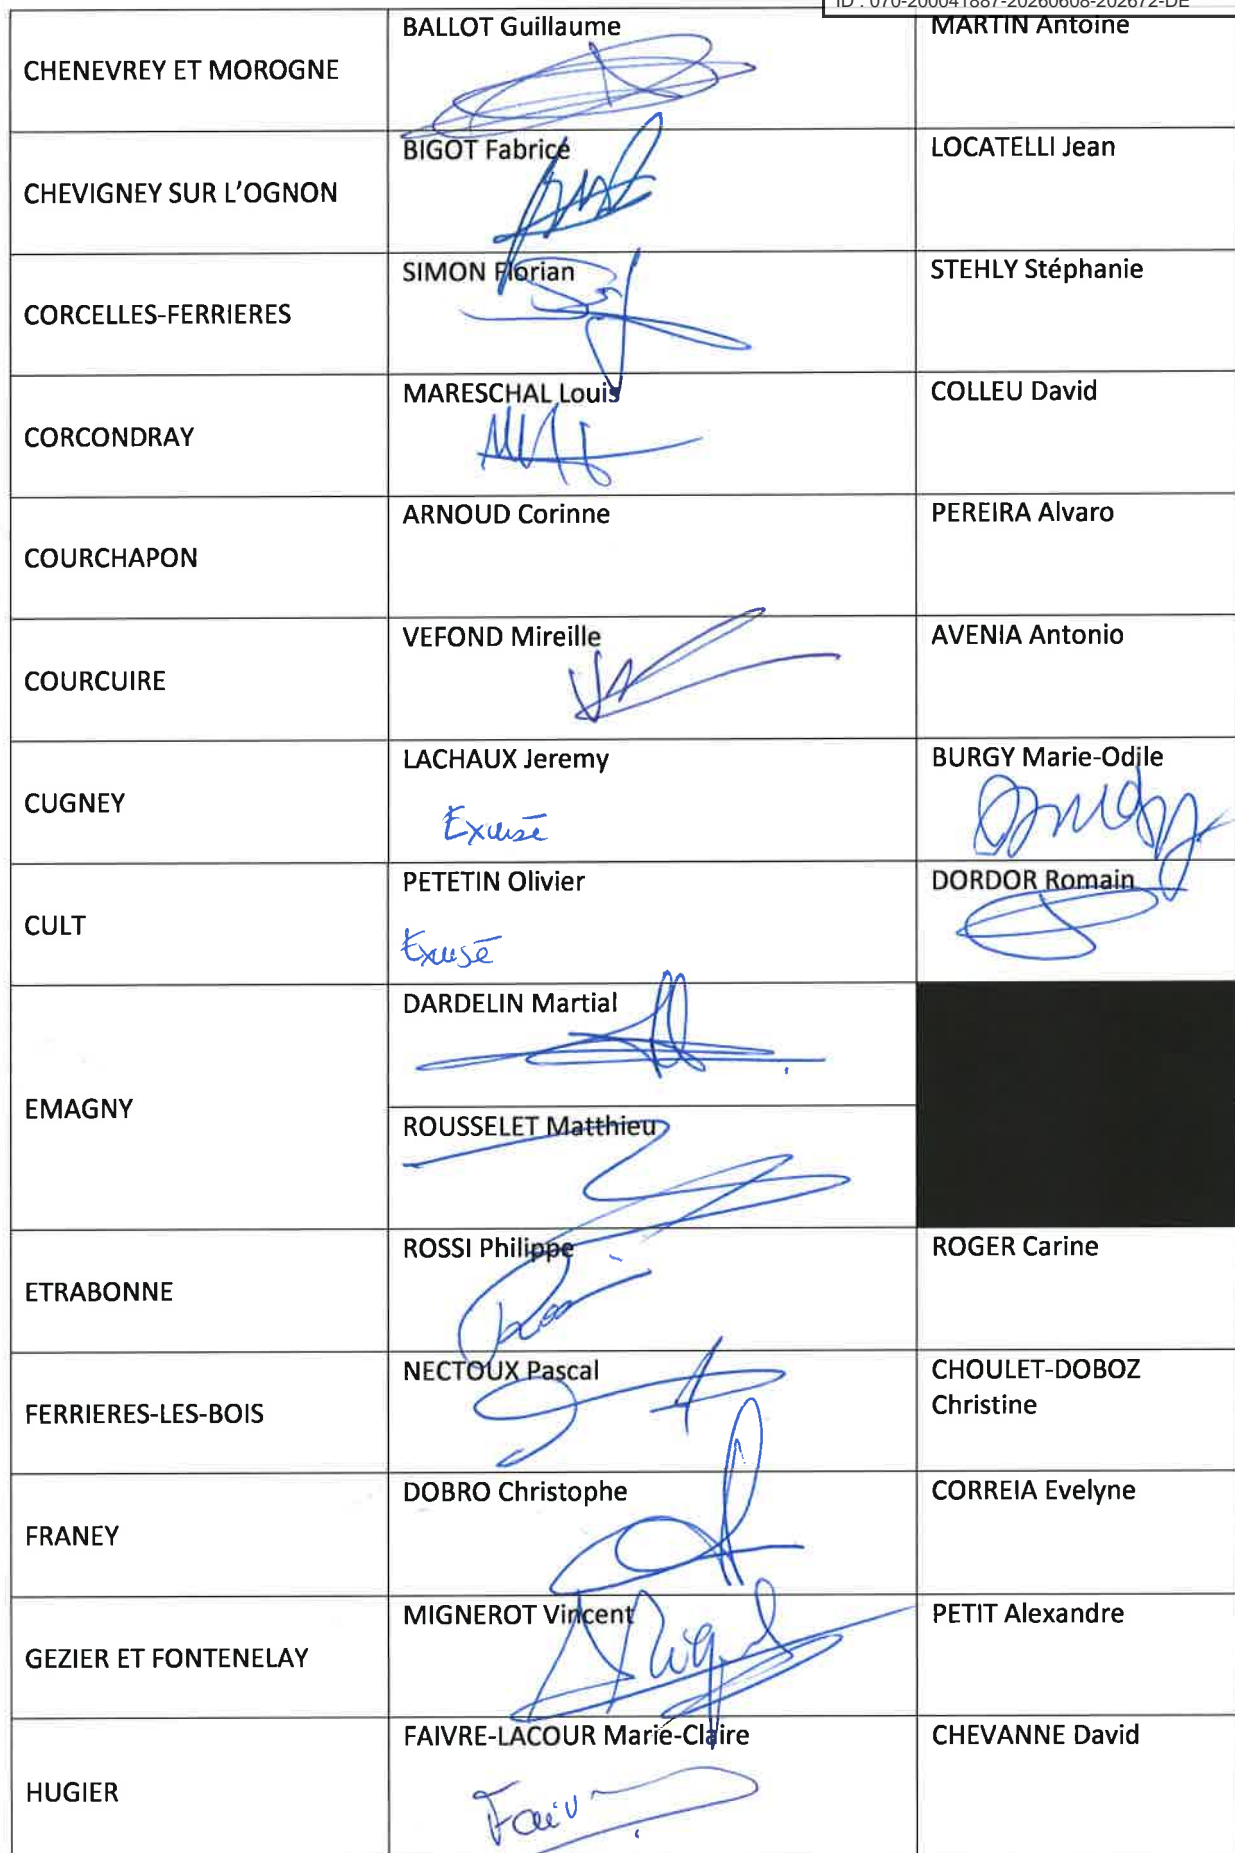 ID : 070-200041887-20260608-202672-DE
CHENEVREY ET MOROGNE
BALLOT Guillaume
MARTIN Antoine
CHEVIGNEY SUR L'OGNON
BIGOT Fabrice
LOCATELLI Jean
CORCELLES-FERRIERES
SIMON Florian
STEHLY Stéphanie
CORCONDRAY
MARESCHAL Louis
COLLEU David
COURCHAPON
ARNOUD Corinne
PEREIRA Alvaro
COURCUIRE
VEFOND Mireille
AVENIA Antonio
CUGNEY
LACHAUX Jeremy
Excusé
BURGY Marie-Odile
CULT
PETETIN Olivier
Excusé
DORDOR Romain
EMAGNY
DARDELIN Martial
ROUSSELET Matthieu
ETRABONNE
ROSSI Philippe
ROGER Carine
FERRIERES-LES-BOIS
NECTOUX Pascal
CHOULET-DOBOZ
Christine
FRANEY
DOBRO Christophe
CORREIA Evelyne
GEZIER ET FONTENELAY
MIGNEROT Vincent
PETIT Alexandre
HUGIER
FAIVRE-LACOUR Marie-Claire
CHEVANNE David